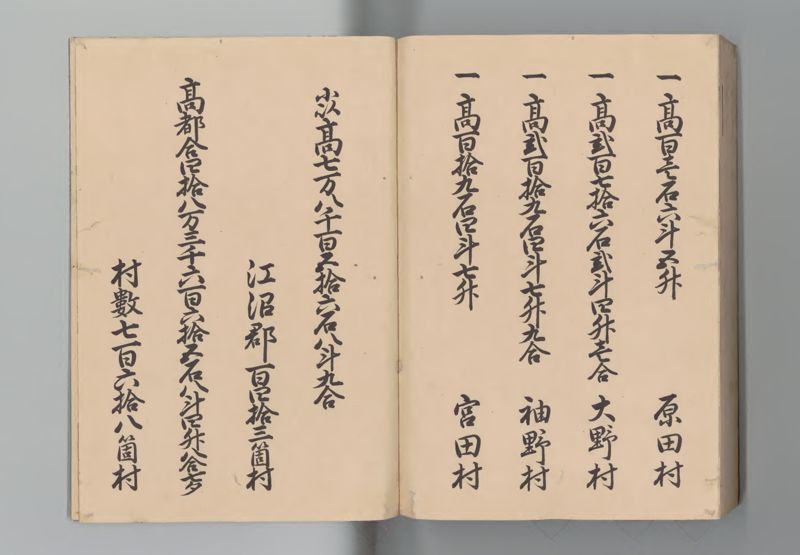 一 高百壱石六斗五升 原田村
一 高弐百七拾六石弐斗四升壱合 大野村
一 高弐百拾九石四斗七升九合 袖野村
一 高百拾九石四斗七升 宮田村
小以高七万八千百五拾六石八斗九合
江沼郡百四拾三箇村
高都合四拾八万三千六百六拾五石八斗四升八合
村數七百六拾八箇村